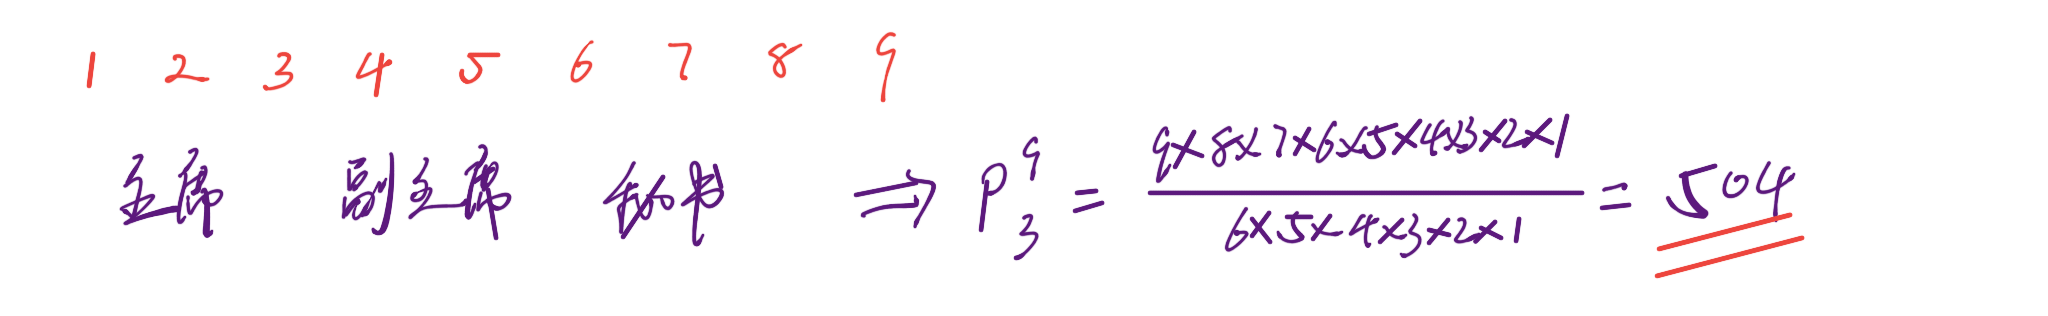 1 2 3 4 5 6 7 8 9
主席 副主席 秘书 ⇒ P₃⁹ = (9×8×7×6×5×4×3×2×1)/(6×5×4×3×2×1) = 504